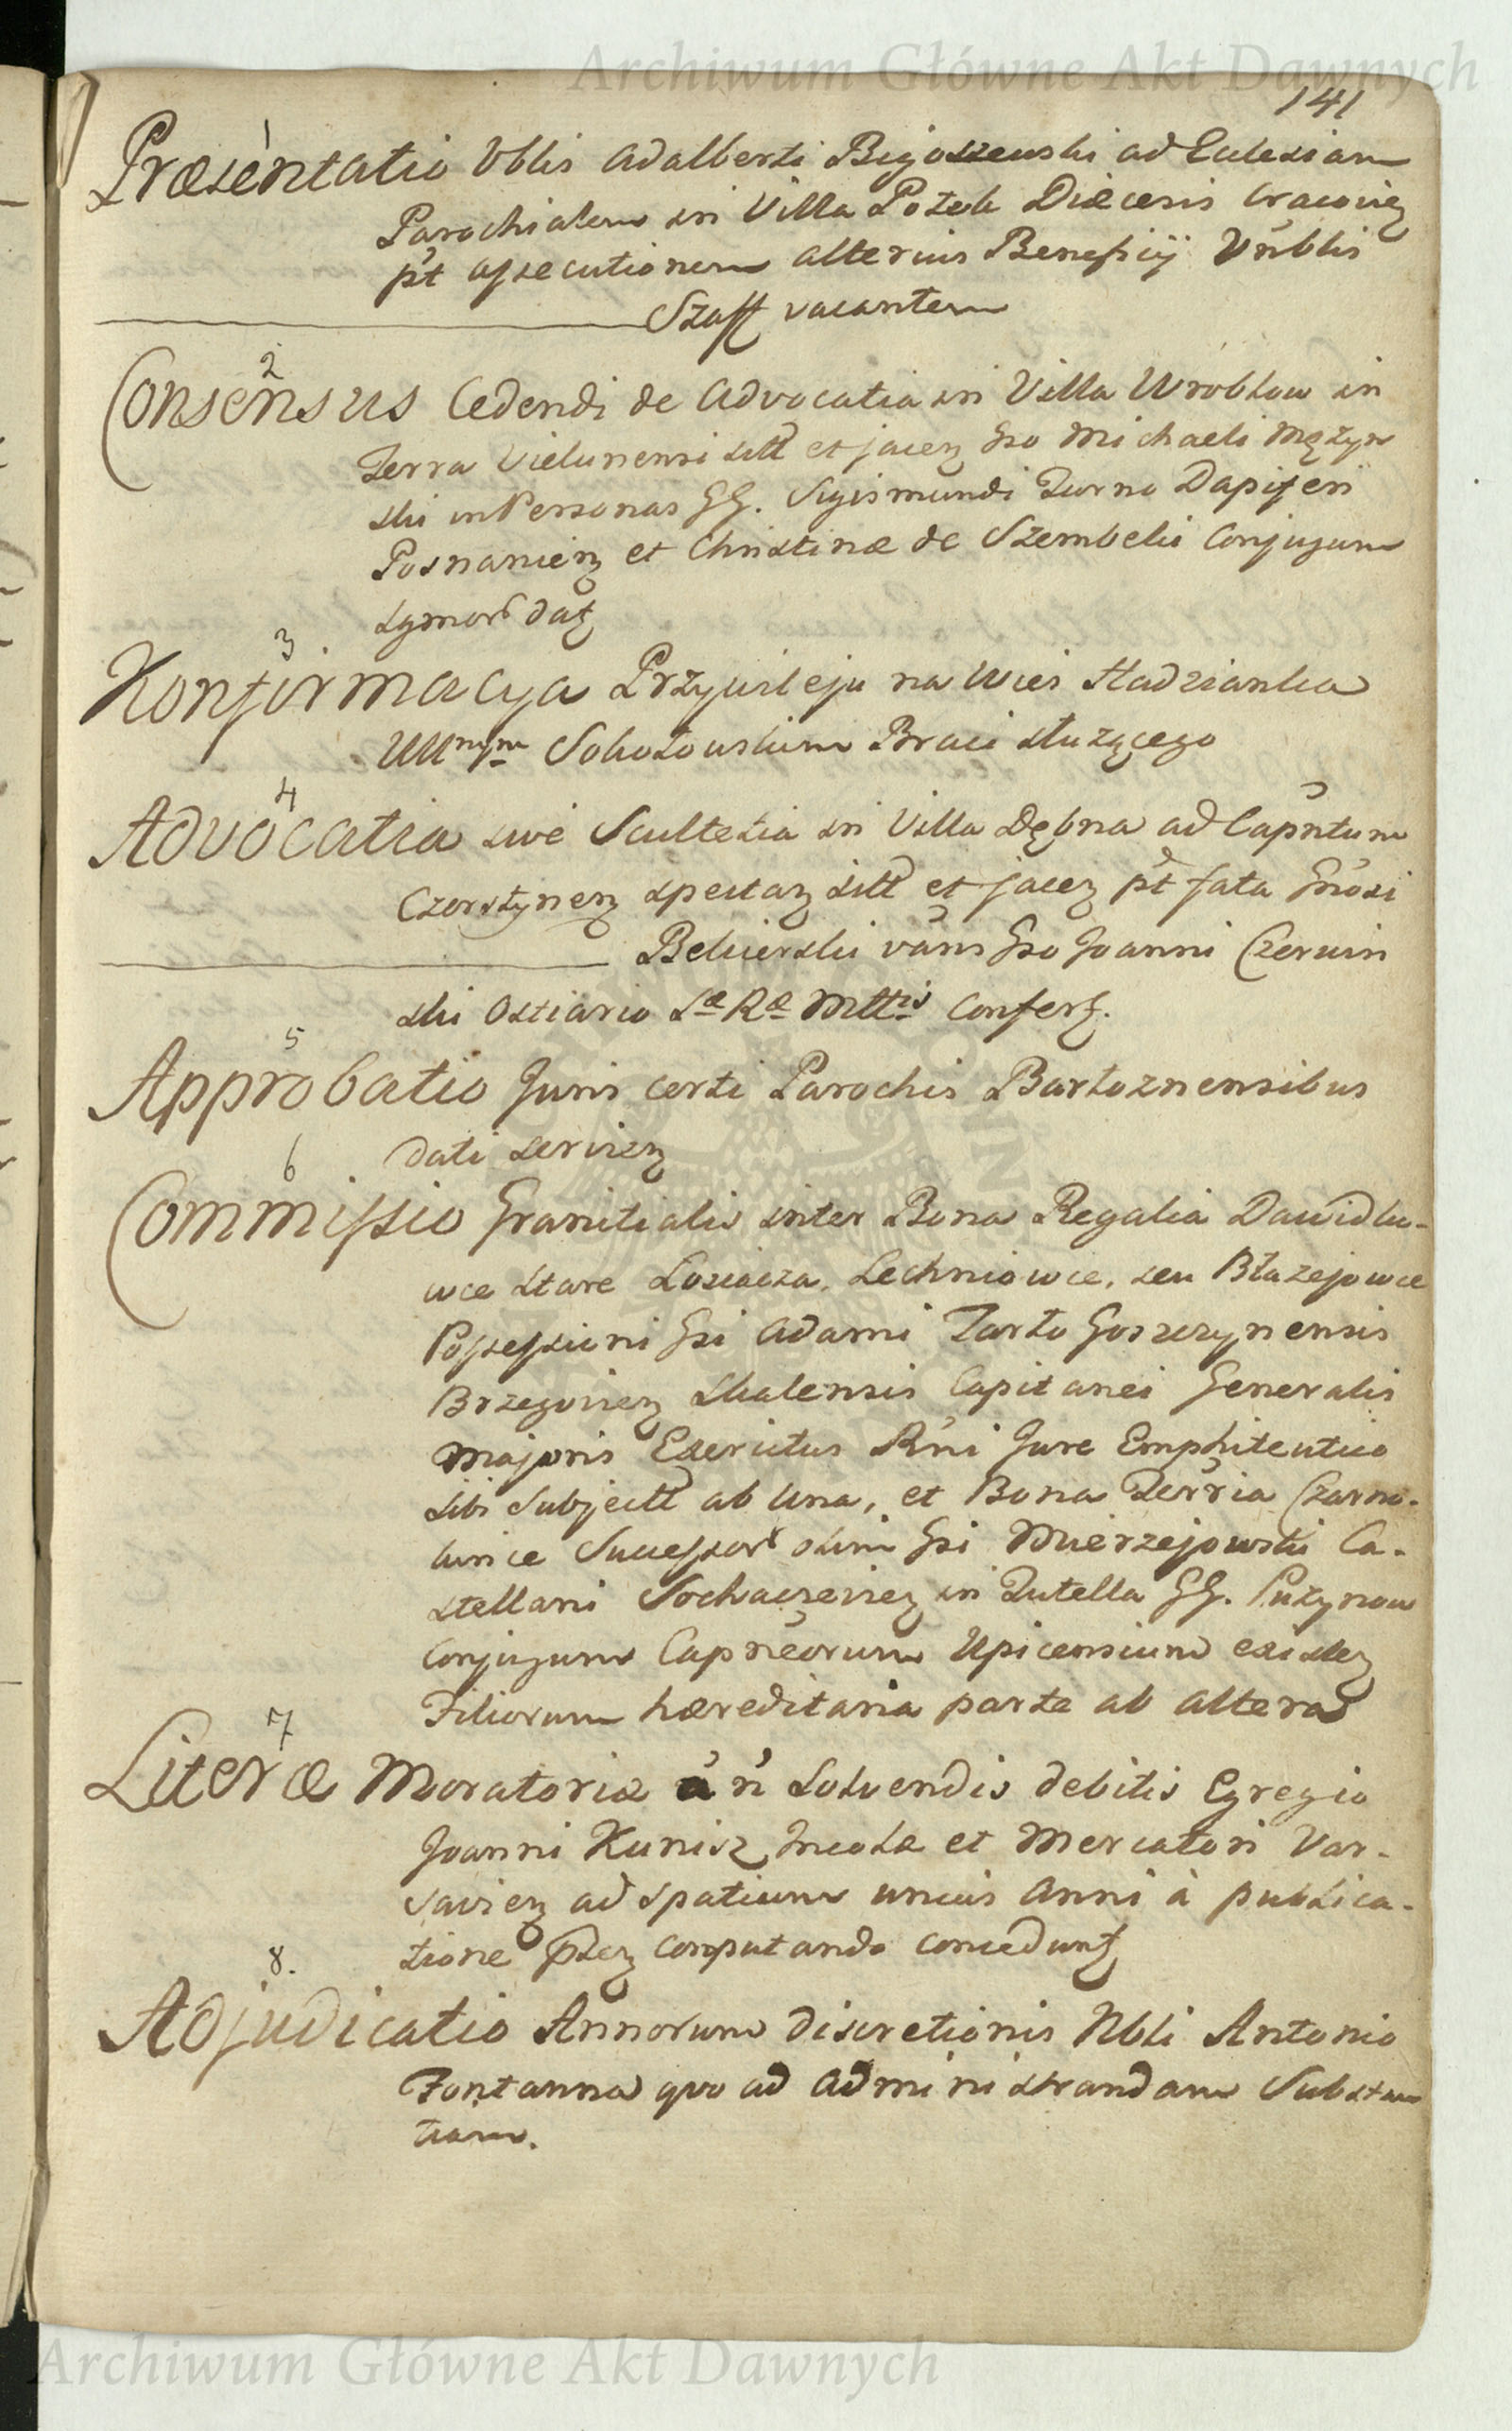 Archiwum Główne Akt Dawnych
141
1
Præsentatio Vblis Adalberti Bigoszewski ad Eclesiam
Parochialem in Villa Potok Diæcesis Cracovien
pt assecutionem alterius Beneficÿ Vnblis
Szafft vacantem
2
Consensus Cedendi de Advocatia in Villa Wroblow in
Terra Vielunensi sitt et jacen Gso Michaeli Męzyn
ski in Personas GG. Sigismundi Zurno Dapiferi
Posnanien et Christinæ de Szembeki Conjugum
datz
3
Konfirmacya Przywileju na Wies Stadzianka
UU Sokołowskim Braci słuzącego
4
Advocatia sive Scultetia in Villa Dębna ad Capntum
Czorstynen spectan sitt et jacen pt fata Gnosi
Bekierski vans Gso Joanni Czerwin
ski Ostiario Sæ Ræ Mttis Confertz.
5
Approbatio Juris certi Parochis Bartoznensibus
dati servien
6
Commissio Granitialis inter Bona Regalia Dawidku-
wce stare Losiacza, Lechniowce, seu Błazejowce
Possessioni Gsi Adami Tarło Goszczynensis
Brzegovien Skalensis Capitanei Generalis
Majoris Exercitus Rni Jure Emphiteutico
sibi Subjectt ab una, et Bona Terrria Czarno-
kunice Successor olim Gsi Mierzejowski Ca-
stellani Sochaczevien in Tutella GG. Puzynow
Conjugum Capneorum Upicensium existen
Filiorum hæreditaria parte ab altera
7
Literæ Moratoriæ a n Solvendis debitis Egregio
Joanni Kunisz Incolæ et Mercatori Var-
savien ad spatium unius Anni à publica-
tione pten computando conceduntz
8.
Adjudicatio Annorum discretionis Nbli Antonio
Fontanna quo ad Administrandam Substan
tiam.
Archiwum Główne Akt Dawnych